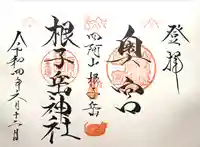 登拝
奥宮
四阿山 根子岳
根子岳神社
令和四年六月十二日